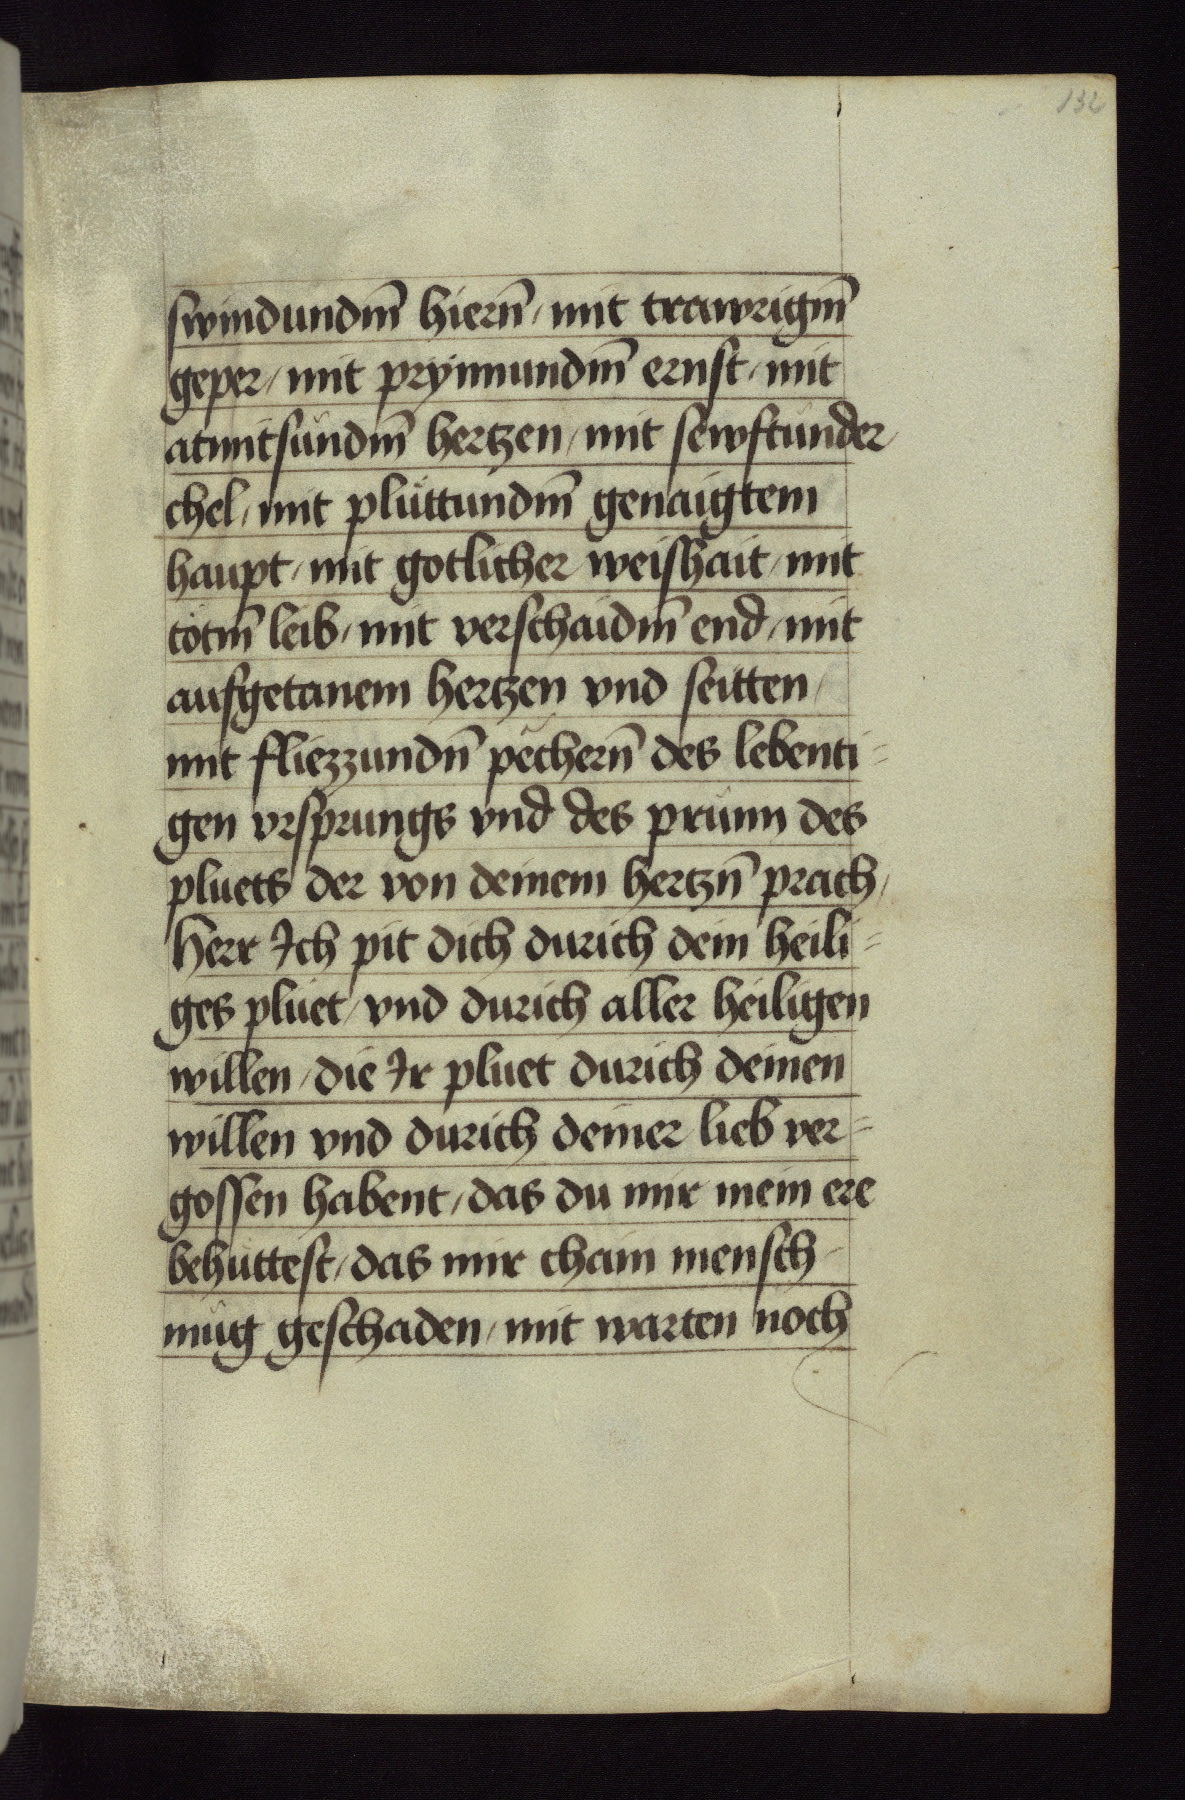 132
swindundm̄ hiern̄ / mit trawrigm̄
geper / mit prymmundm̄ ernst / mit
atmitsundm̄ hertzen / mit sewftunder
chel / mit pluttundm̄ genaigtem
haupt / mit gotlicher weishait / mit
totm̄ leib / mit verschaidm̄ end / mit
aufgetanem hertzen vnd seitten /
mit fliezzundn̄ pechern̄ des lebenti=
gen vrsprungs vnd des prunn des
pluets der von deinem hertzn̄ prach /
Herr Ich pit dich durich dein heili=
ges pluet / vnd durich aller heiligen
willen / die Ir pluet durich deinen
willen vnd durich deiner lieb ver=
gossen habent / das du mir mein ere
behüttest / das mir chain mensch
müg geschaden / mit warten noch